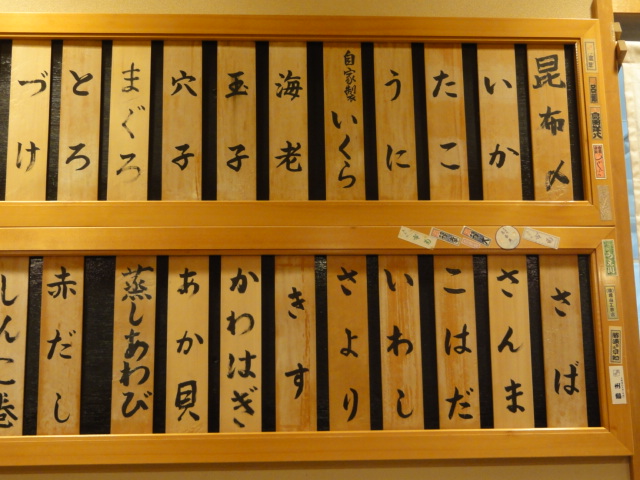 昆布〆
いか
たこ
うに
自家製いくら
海老
玉子
穴子
まぐろ
とろ
づけ
さば
さんま
こはだ
いわし
さより
きす
かわはぎ
あか貝
蒸しあわび
赤だし
しんこ巻